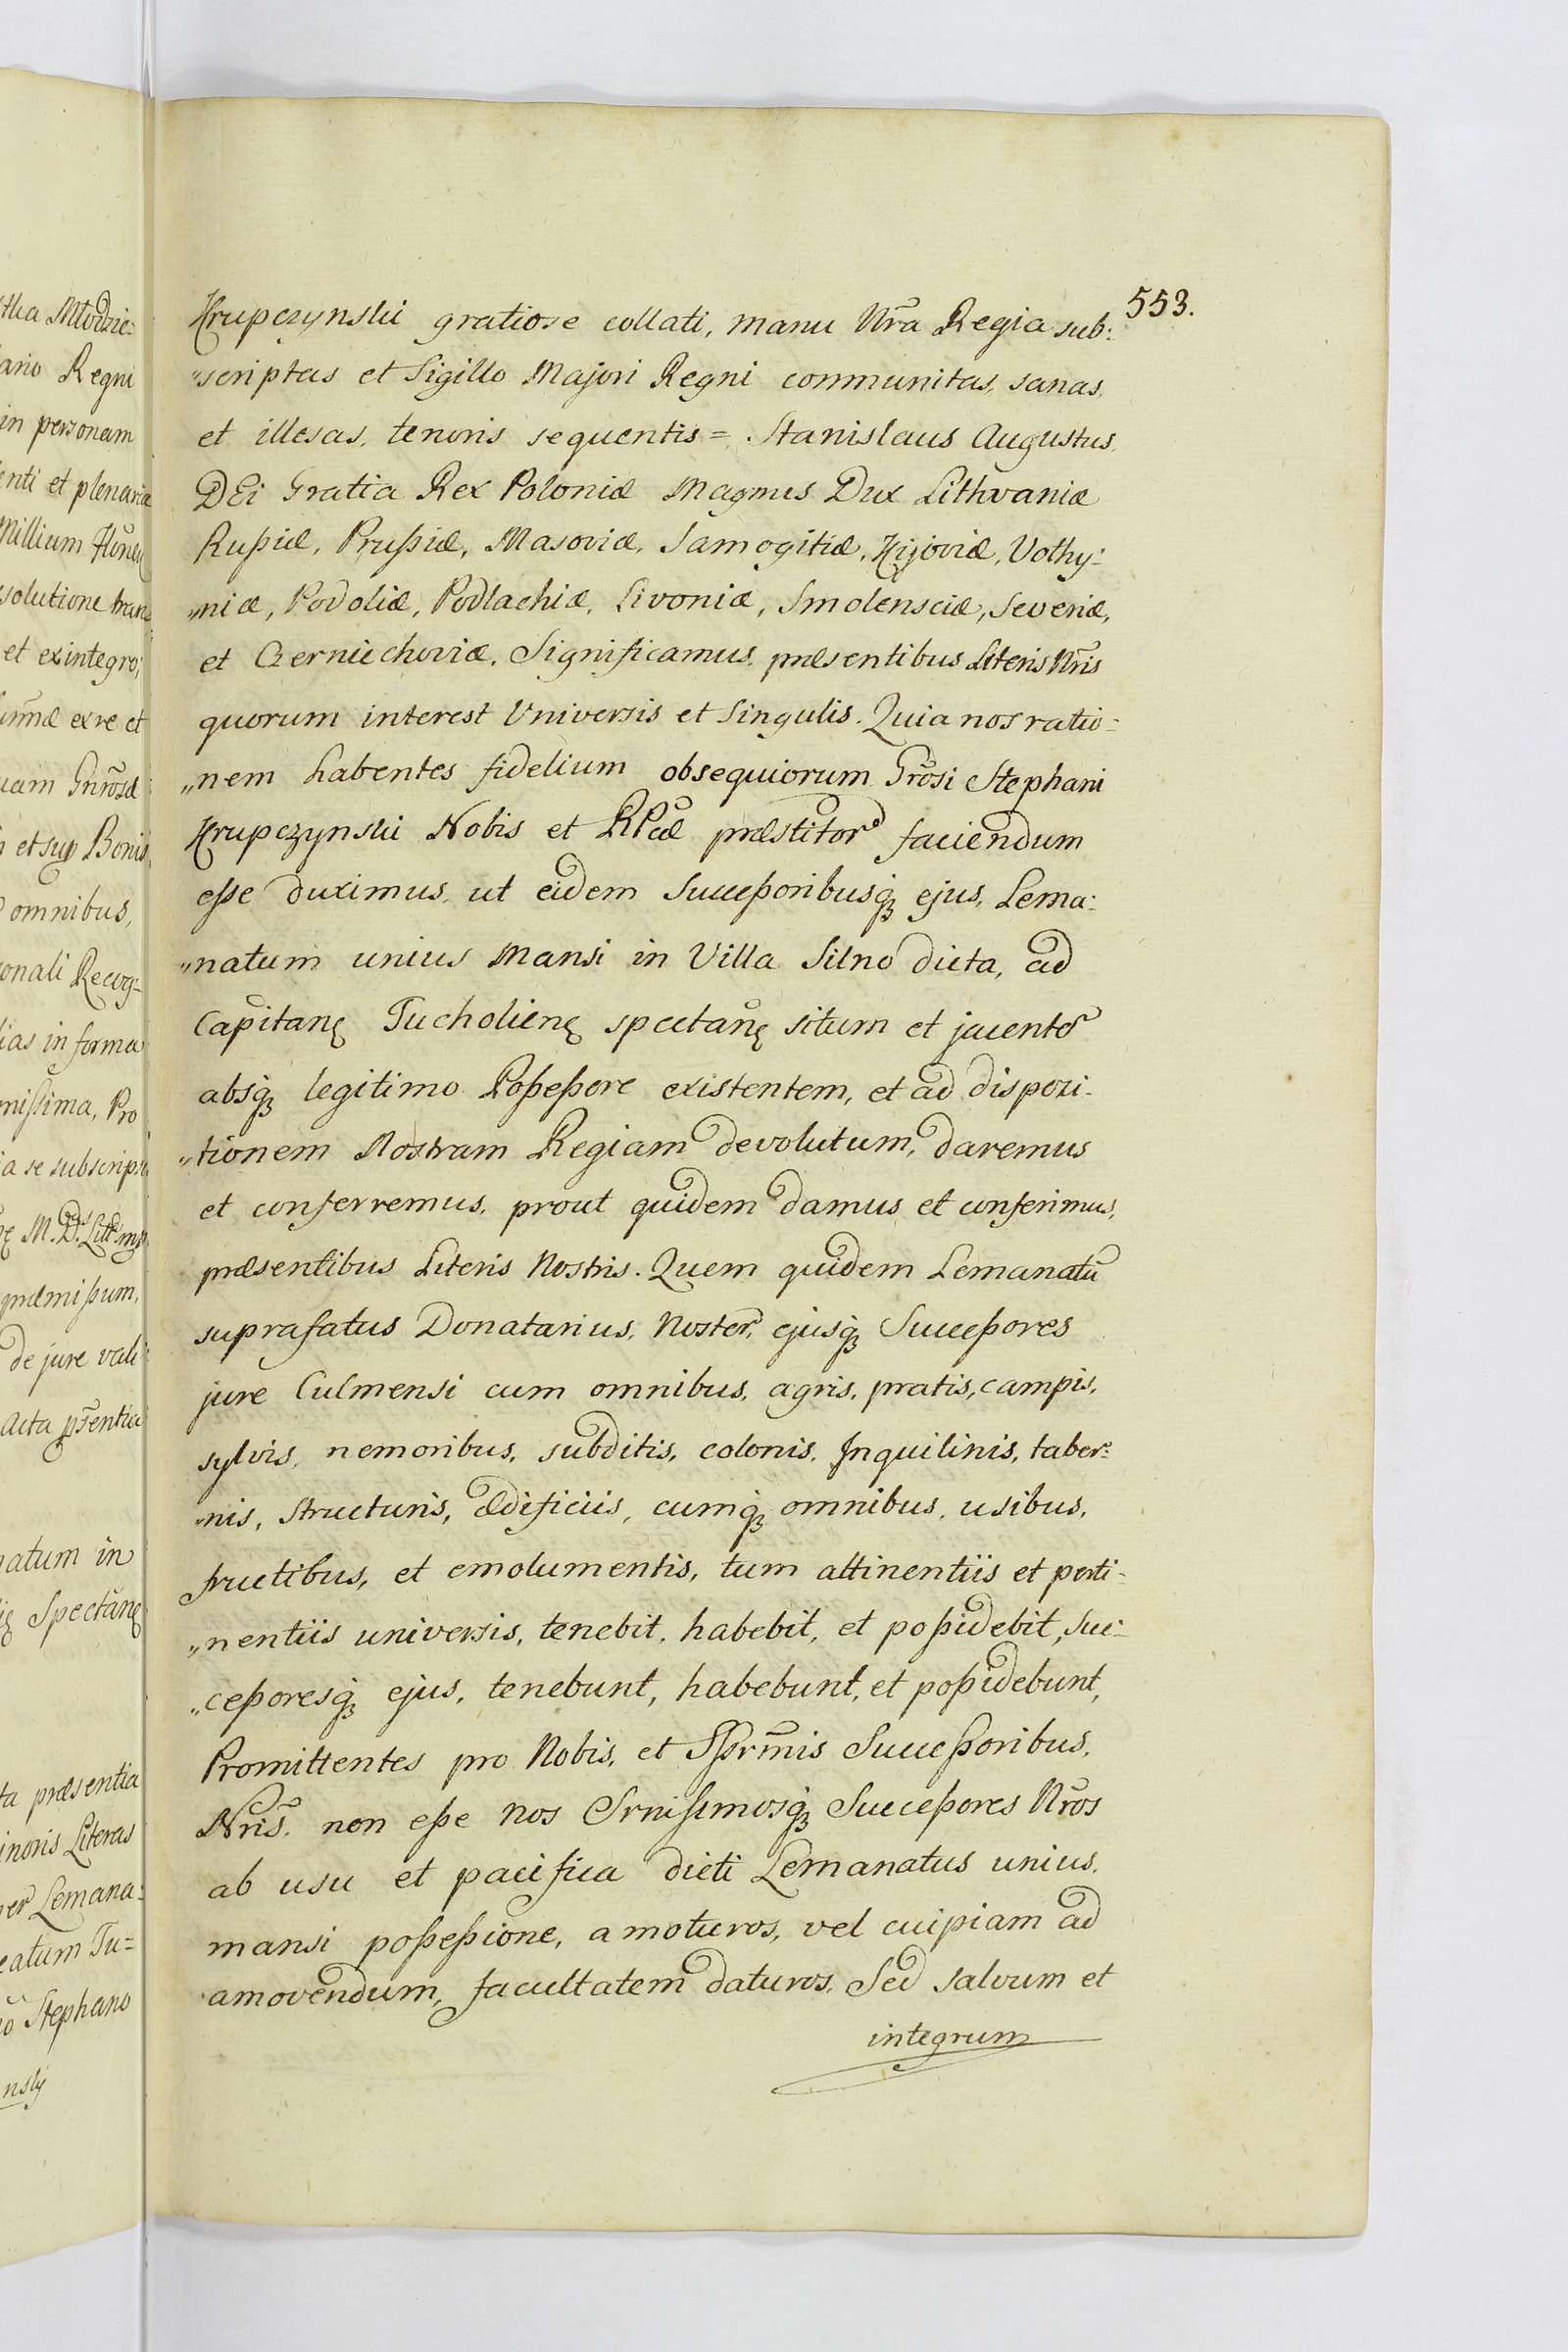 553.
Krupczynski gratiose collati, manu Nr̃a Regia sub:
"scriptas et Sigillo Majori Regni communitas, sanas,
et illesas, tenoris sequentis =. Stanislaus Augustus
DEi Gratia Rex Poloniæ Magnus Dux Lithvaniæ
Rußiæ, Prußiæ, Masoviæ, Samogitiæ, Kijoviæ, Volhy:
"niæ, Podoliæ, Podlachiæ, Livoniæ, Smolensciæ, Severiæ,
et Czerniechoviæ. Significamus præsentibus Literis Nr̃is
quorum interest Universis et Singulis. Quia nos ratio:
"nem habentes fidelium obsequiorum Gr̃osi Stephani
Krupczynski Nobis et RPcæ præstitor̃ faciendum
eße duximus, ut eidem Succeßoribusq́ꝫ ejus, Lema:
"natum unius Mansi in Villa Silno dicta, ad
Capitanꝫ Tucholienꝫ spectanꝫ situm et jacente͂
absq́ꝫ legitimo Poßeßore existentem, et ad disposi:
"tionem Nostram Regiam devolutum, daremus
et conferremus, prout quidem damus et conferimus,
præsentibus Literis Nostris. Quem quidem Lemanatũ
suprafatus Donatarius, Noster, ejusq́ꝫ Succeßores
jure Culmensi cum omnibus, agris, pratis, campis,
sylvis, nemoribus, subditis, colonis, Inquilinis, taber:
"nis, structuris, ædificiis, cumq́ꝫ omnibus, usibus,
fructibus, et emolumentis, tum attinentiis et perti:
"nentiis universis, tenebit, habebit, et poßidebit, Suc:
"ceßoresq́ꝫ ejus, tenebunt, habebunt, et poßidebunt,
Promittentes pro Nobis, et SSr̃mis Succeßoribus,
Nr̃is, non eße nos Srnißimosq́ꝫ Succeßores Nr̃os
ab usu et pacifica dicti Lemanatus unius,
mansi poßeßione, amoturos, vel cuipiam ad
amovendum, facultatem daturos. Sed salvum et
integrum